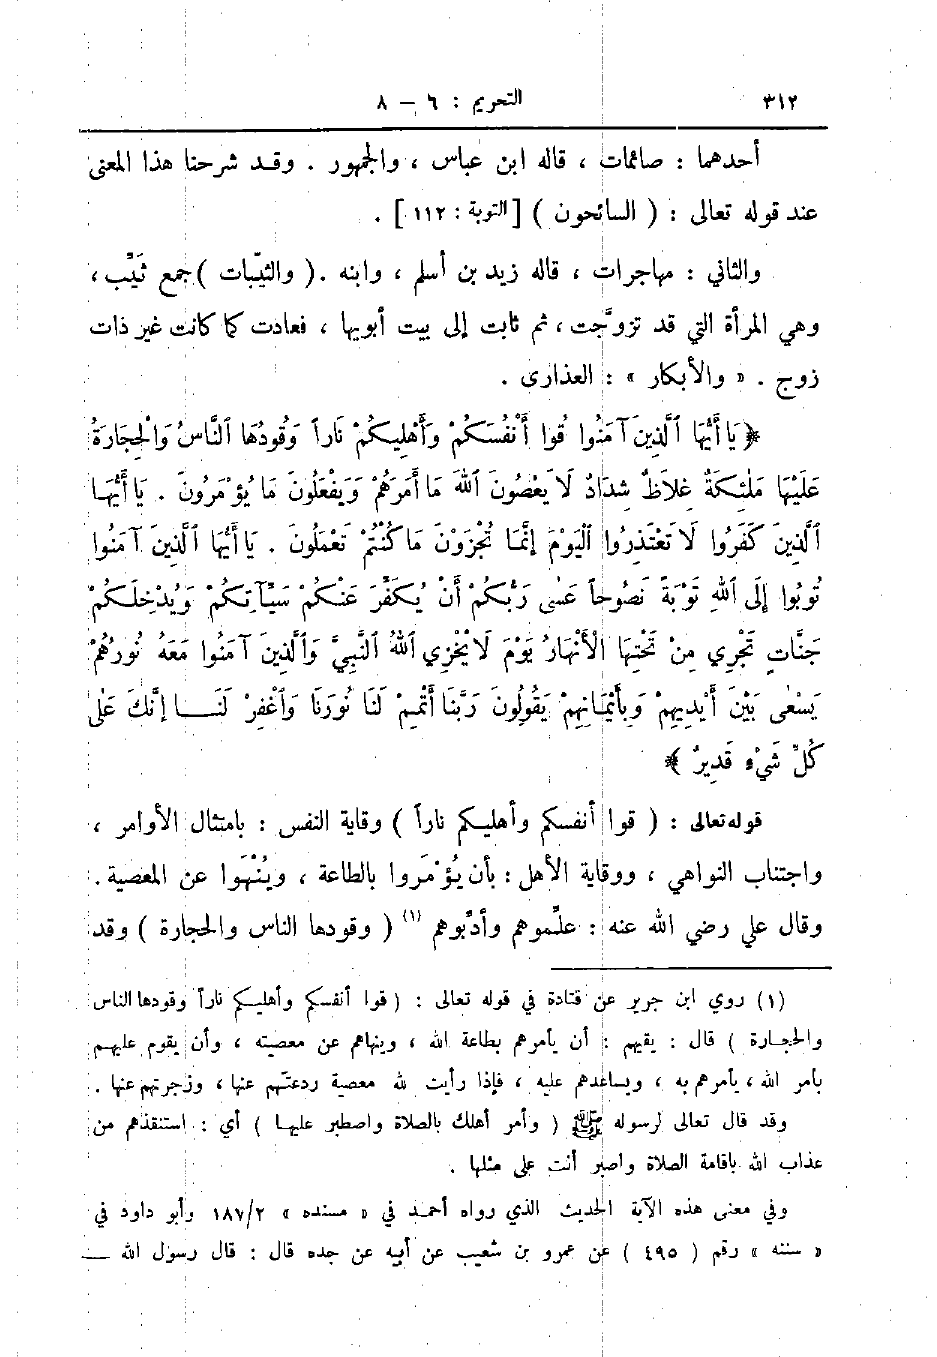 ٣١٢ التحريم : ٦ – ٨
أحدهما : صائمات ، قاله ابن عباس ، والجمهور . وقد شرحنا هذا المعنى
عند قوله تعالى : ( السائحون ) [ التوبة : ١١٢ ] .
والثاني : مهاجرات ، قاله زيد بن أسلم ، وابنه . ( والثيّبات ) جمع ثَيِّب ،
وهي المرأة التي قد تزوَّجت ، ثم ثابت إلى بيت أبويها ، فعادت كما كانت غير ذات
زوج . « والأبكار » : العذارى .
﴿ يَا أَيُّهَا ٱلَّذِينَ آمَنُوا قُوا أَنْفُسَكُمْ وَأَهْلِيكُمْ نَاراً وَقُودُهَا ٱلنَّاسُ وَٱلْحِجَارَةُ
عَلَيْهَا مَلٰئِكَةٌ غِلَاظٌ شِدَادٌ لَا يَعْصُونَ ٱللهَ مَا أَمَرَهُمْ وَيَفْعَلُونَ مَا يُؤْمَرُونَ . يَا أَيُّهَا
ٱلَّذِينَ كَفَرُوا لَا تَعْتَذِرُوا ٱلْيَوْمَ إِنَّمَا تُجْزَوْنَ مَا كُنْتُمْ تَعْمَلُونَ . يَا أَيُّهَا ٱلَّذِينَ آمَنُوا
تُوبُوا إِلَى ٱللهِ تَوْبَةً نَصُوحاً عَسٰى رَبُّكُمْ أَنْ يُكَفِّرَ عَنْكُمْ سَيِّآتِكُمْ وَيُدْخِلَكُمْ
جَنَّاتٍ تَجْرِي مِنْ تَحْتِهَا ٱلْأَنْهَارُ يَوْمَ لَا يُخْزِي ٱللهُ ٱلنَّبِيَّ وَٱلَّذِينَ آمَنُوا مَعَهُ نُورُهُمْ
يَسْعٰى بَيْنَ أَيْدِيهِمْ وَبِأَيْمَانِهِمْ يَقُولُونَ رَبَّنَا أَتْمِمْ لَنَا نُورَنَا وَٱغْفِرْ لَنَا إِنَّكَ عَلٰى
كُلِّ شَيْءٍ قَدِيرٌ ﴾
قوله تعالى : ( قوا أنفسكم وأهليكم ناراً ) وقاية النفس : بامتثال الأوامر ،
واجتناب النواهي ، ووقاية الأهل : بأن يُؤْمَروا بالطاعة ، ويُنْهَوا عن المعصية .
وقال علي رضي الله عنه : علِّموهم وأدِّبوهم (١) ( وقودها الناس والحجارة ) وقد
(١) روي ابن جرير عن قتادة في قوله تعالى : ( قوا أنفسكم وأهليكم ناراً وقودها الناس
والحجارة ) قال : يقيهم : أن يأمرهم بطاعة الله ، وينهاهم عن معصيته ، وأن يقوم عليهم
بأمر الله ، يأمرهم به ، ويساعدهم عليه ، فإذا رأيت لله معصية ردعتَهم عنها ، وزجرتهم عنها .
وقد قال تعالى لرسوله ﷺ ( وأمر أهلك بالصلاة واصطبر عليها ) أي : استنقذهم من
عذاب الله باقامة الصلاة واصبر أنت على مثلها .
وفي معنى هذه الآية الحديث الذي رواه أحمد في « مسنده » ١٨٧/٢ وأبو داود في
« سننه » رقم ( ٤٩٥ ) عن عمرو بن شعيب عن أبيه عن جده قال : قال رسول الله —